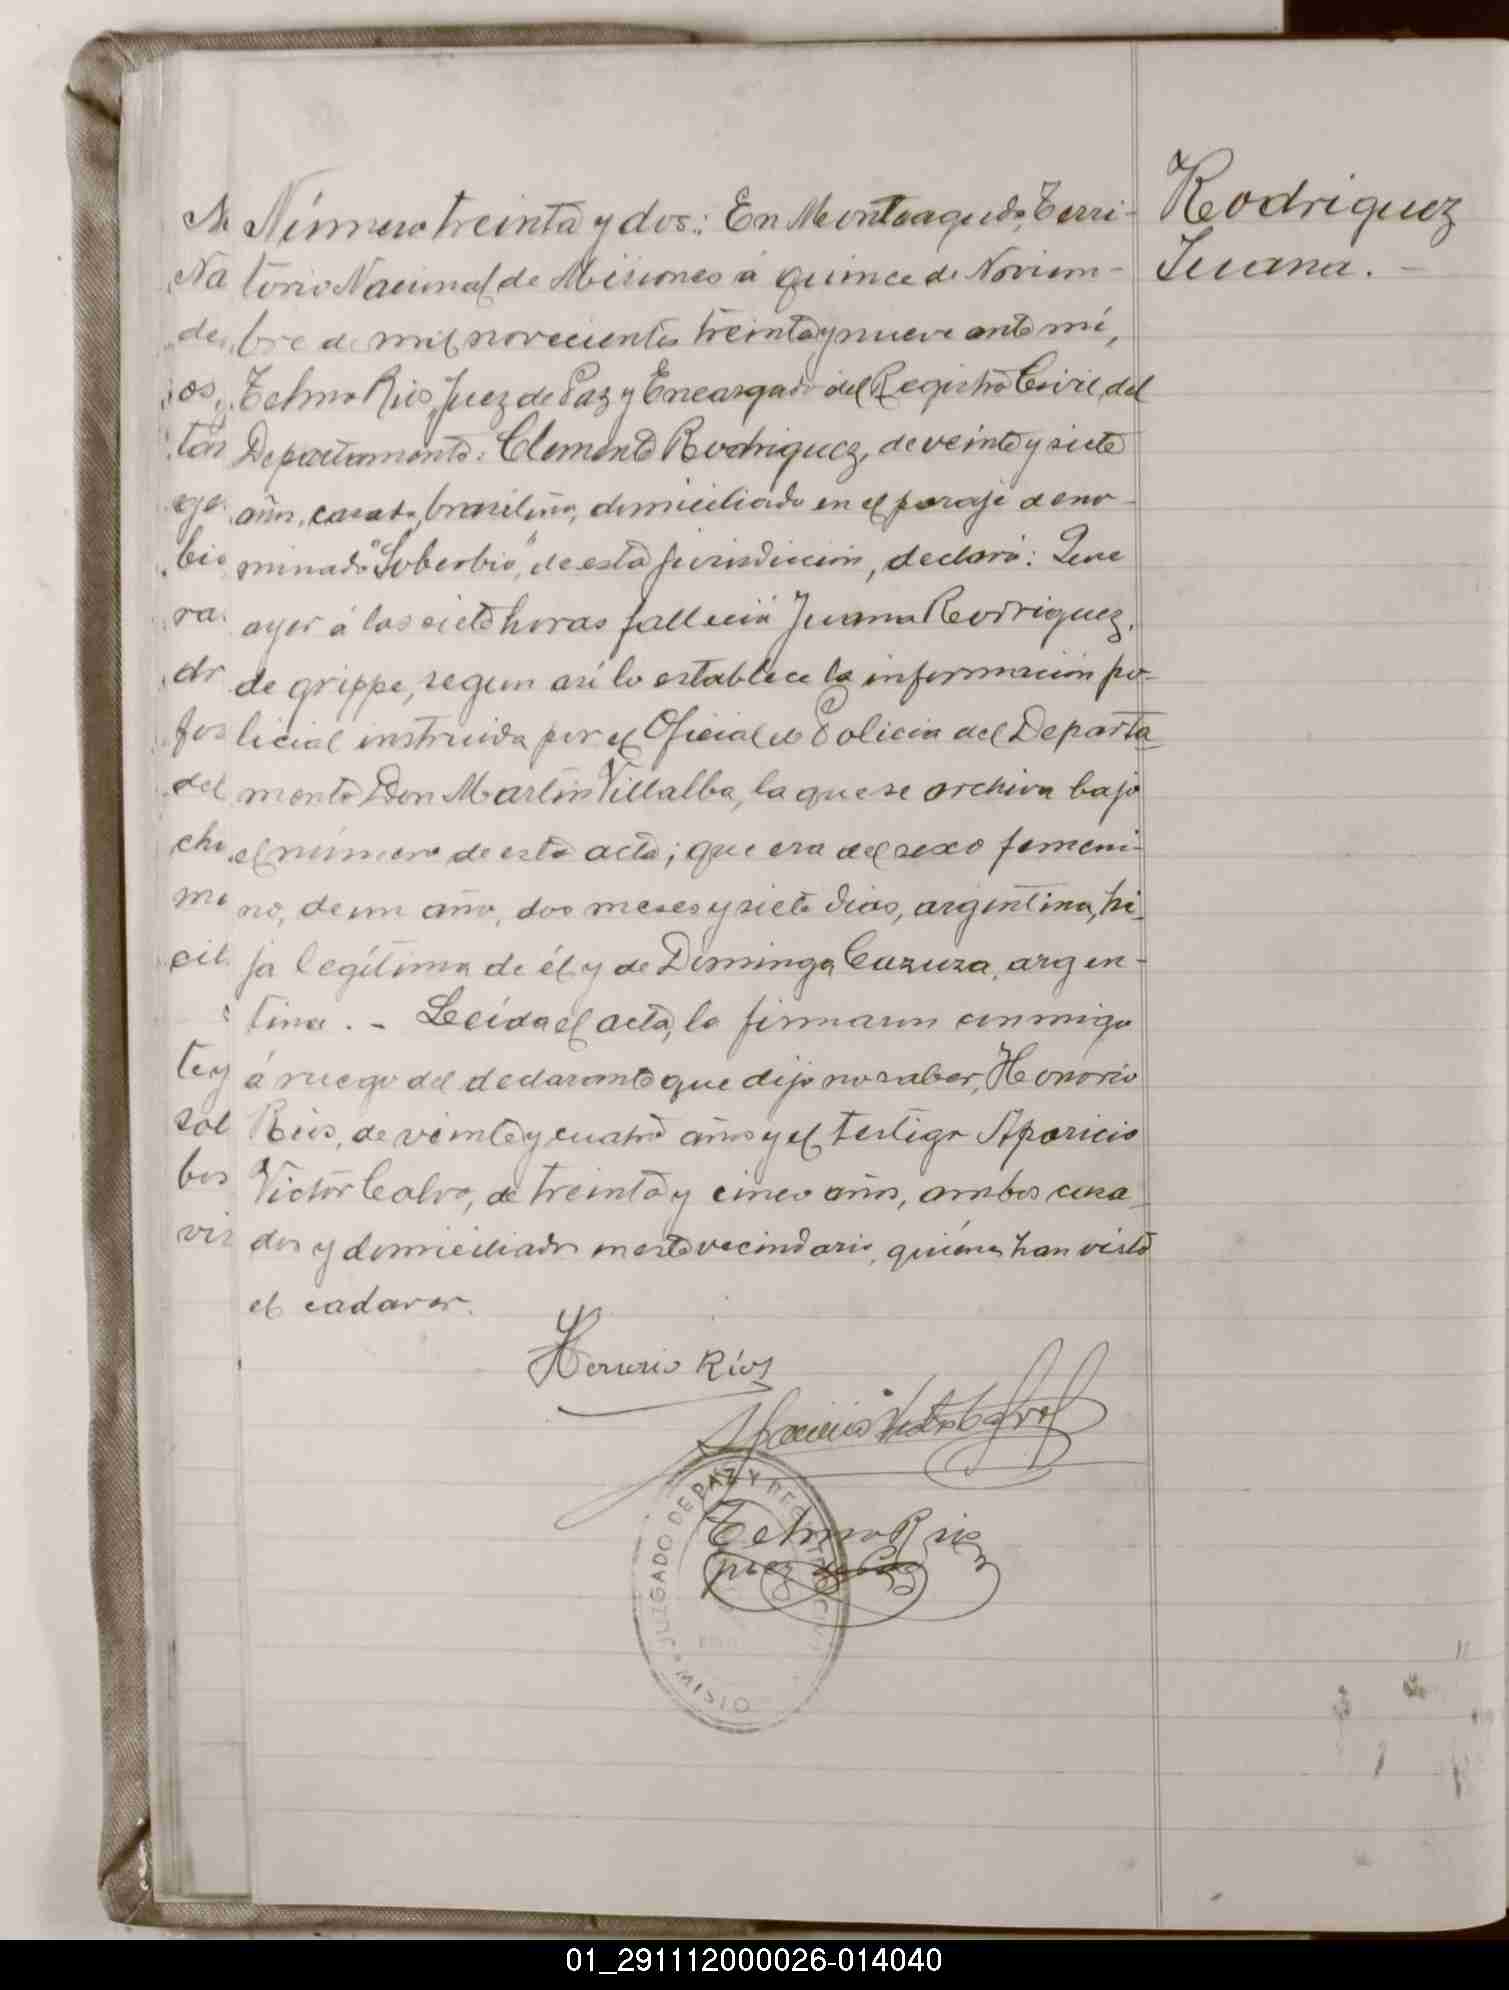 Número treinta y dos: En Monteagudo, Terri-
torio Nacional de Misiones á quince de Noviem-
bre de mil novecientos treinta y nueve ante mí,
Telmo Rios, Juez de Paz y Encargado del Registro Civil del
Departamento: Clemente Rodriguez, de veinte y siete
años, casado, brasileño, domiciliado en el paraje deno-
minado "Soberbio", de esta jurisdicción, declaró: Que
ayer á las siete horas falleció Juana Rodriguez,
de grippe, segun así lo establece la información po-
licial instruida por el Oficial de Policia del Departa
mento Don Martín Villalba, la que se archiva bajo
el número de esta acta; que era del sexo femeni-
no, de un año, dos meses y siete dias, argentina, hi-
ja legítima de él y de Dominga Cuzuza, argen-
tina. - Leída el acta, la firmaron conmigo
á ruego del declarante que dijo no saber, Honorio
Rios, de veinte y cuatro años y el testigo Aparicio
Victor Calvo, de treinta y cinco años, ambos casa
dos y domiciliados en este vecindario, quiénes han visto
el cadaver.
Rodriguez
Juana. -
Honorio Ríos
Aparicio Victor Calvo
Telmo Rios
Juez de Paz
JUZGADO DE PAZ Y REGISTRO CIVIL
MISIO
01_291112000026-014040